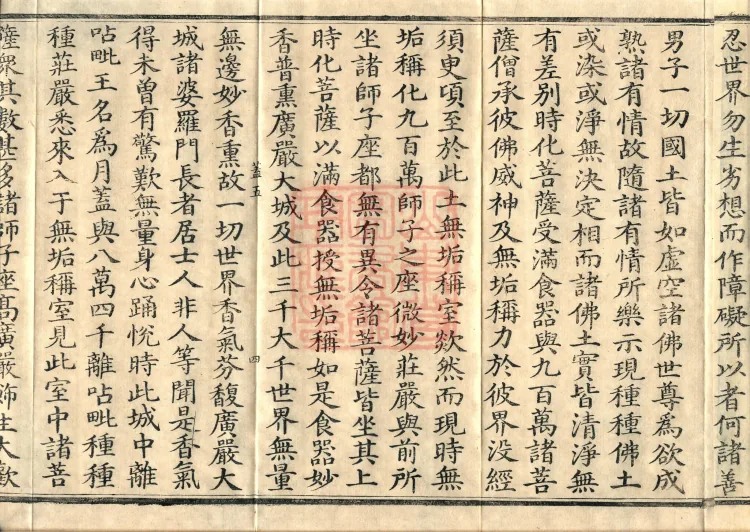 忍世界勿生劣想而作障礙所以者何諸善
男子一切國土皆如虛空諸佛世尊爲欲成
熟諸有情故隨諸有情所樂示現種種佛土
或染或淨無決定相而諸佛土實皆清淨無
有差別時化菩薩受滿食器與九百萬諸菩
薩僧承彼佛威神及無垢稱力於彼界没經
須臾頃至於此土無垢稱室欻然而現時無
垢稱化九百萬師子之座微妙莊嚴與前所
坐諸師子座都無有異令諸菩薩皆坐其上
時化菩薩以滿食器授無垢稱如是食器妙
香普熏廣嚴大城及此三千大千世界無量
蓋五
四
無邊妙香熏故一切世界香氣芬馥廣嚴大
城諸婆羅門長者居士人非人等聞是香氣
得未曾有驚歎無量身心踊悅時此城中離
呫毗王名爲月蓋與八萬四千離呫毗種種
種莊嚴悉來入于無垢稱室見此室中諸菩
薩衆其數甚多諸師子座高廣嚴飾生大歡